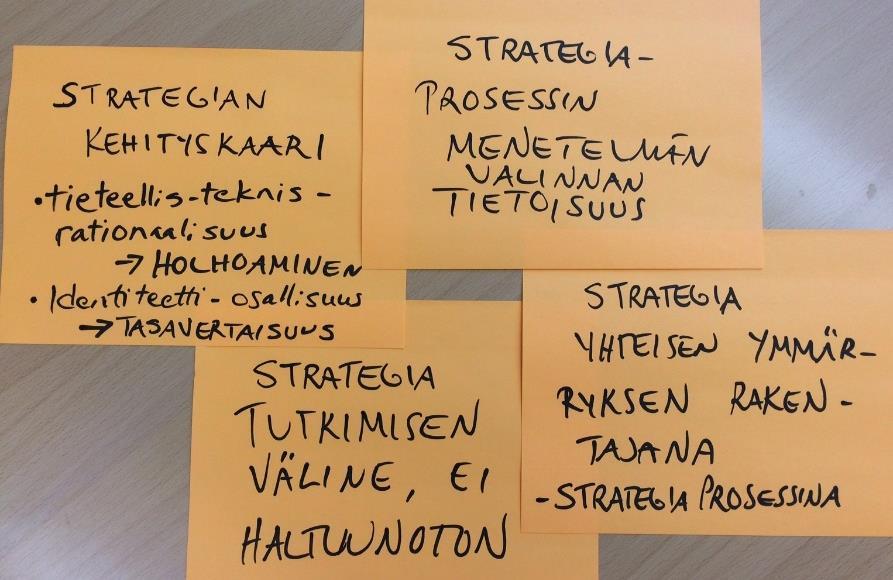 STRATEGIAN
KEHITYSKAARI
•tieteellis-teknis-
rationaalisuus
→ HOLHOAMINEN
• Identiteetti-osallisuus
→ TASAVERTAISUUS
STRATEGIA-
PROSESSIN
MENETELMÄN
VALINNAN
TIETOISUUS
STRATEGIA
TUTKIMISEN
VÄLINE, EI
HALTUUNOTON
STRATEGIA
YHTEISEN YMMÄR-
RYKSEN RAKEN-
TAJANA
-STRATEGIA PROSESSINA